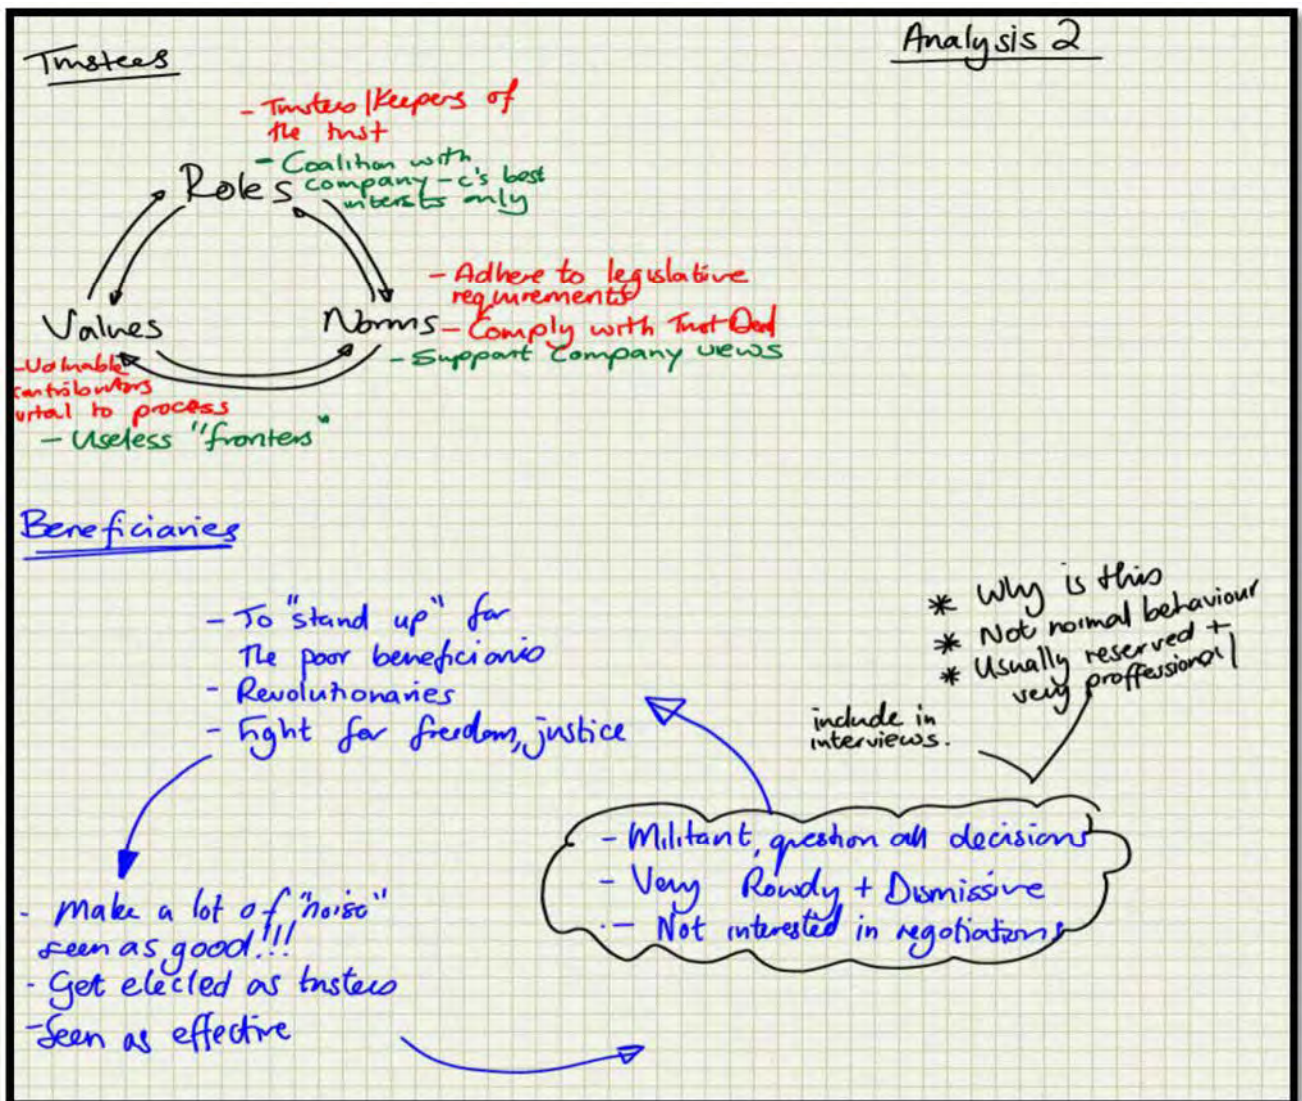 Analysis 2
Trustees
- Trustees/Keepers of
the trust
- Coalition with
company - c's best
interests only
Roles
- Adhere to legislative
requirements
Values
Norms
- Comply with Trust Deed
- Support Company views
- Valuable
contributors
vital to process
- Useless "fronters"
Beneficiaries
- To "stand up" for
The poor beneficiaries
- Revolutionaries
- Fight for freedom, justice
* Why is this
* Not normal behaviour
* Usually reserved +
very proffessional
include in
interviews.
- Militant, question all decisions
- Very Rowdy + Dismissive
- Not interested in negotiations
- Make a lot of "noise"
seen as good!!!
- Get elected as trustees
- Seen as effective